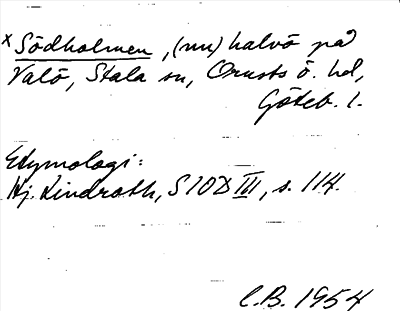 x Södholmen, (nu) halvö på
Valö, Stala sn, Orusts ö. hd,
Göteb. l.
Etymologi:
Hj. Lindroth, SIOD III, s. 114.
C.B. 1954